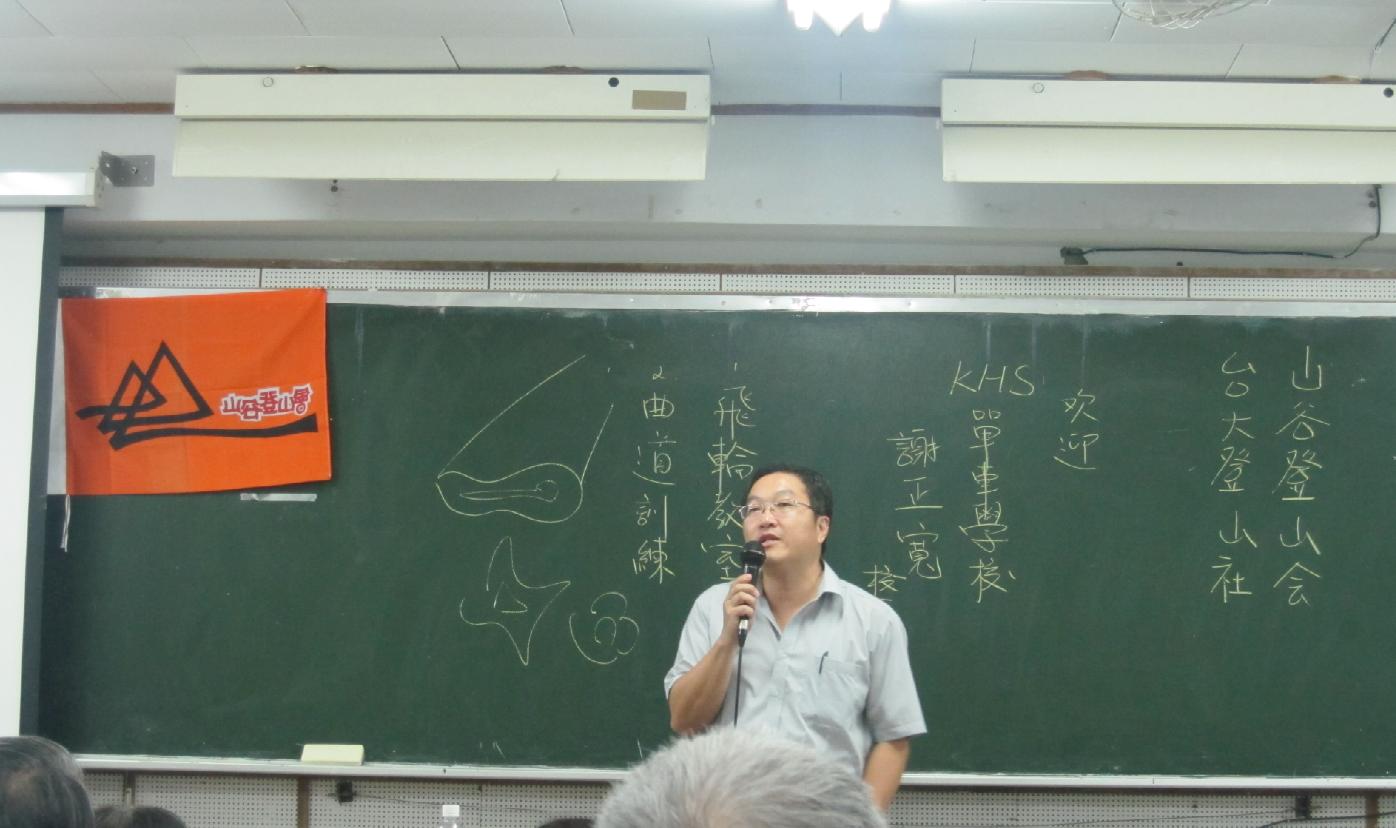 山谷登山会
台大登山社
欢迎
KHS
單車學校
謝正寬
校
1.飛輪教室
2.曲道訓練
山谷登山會